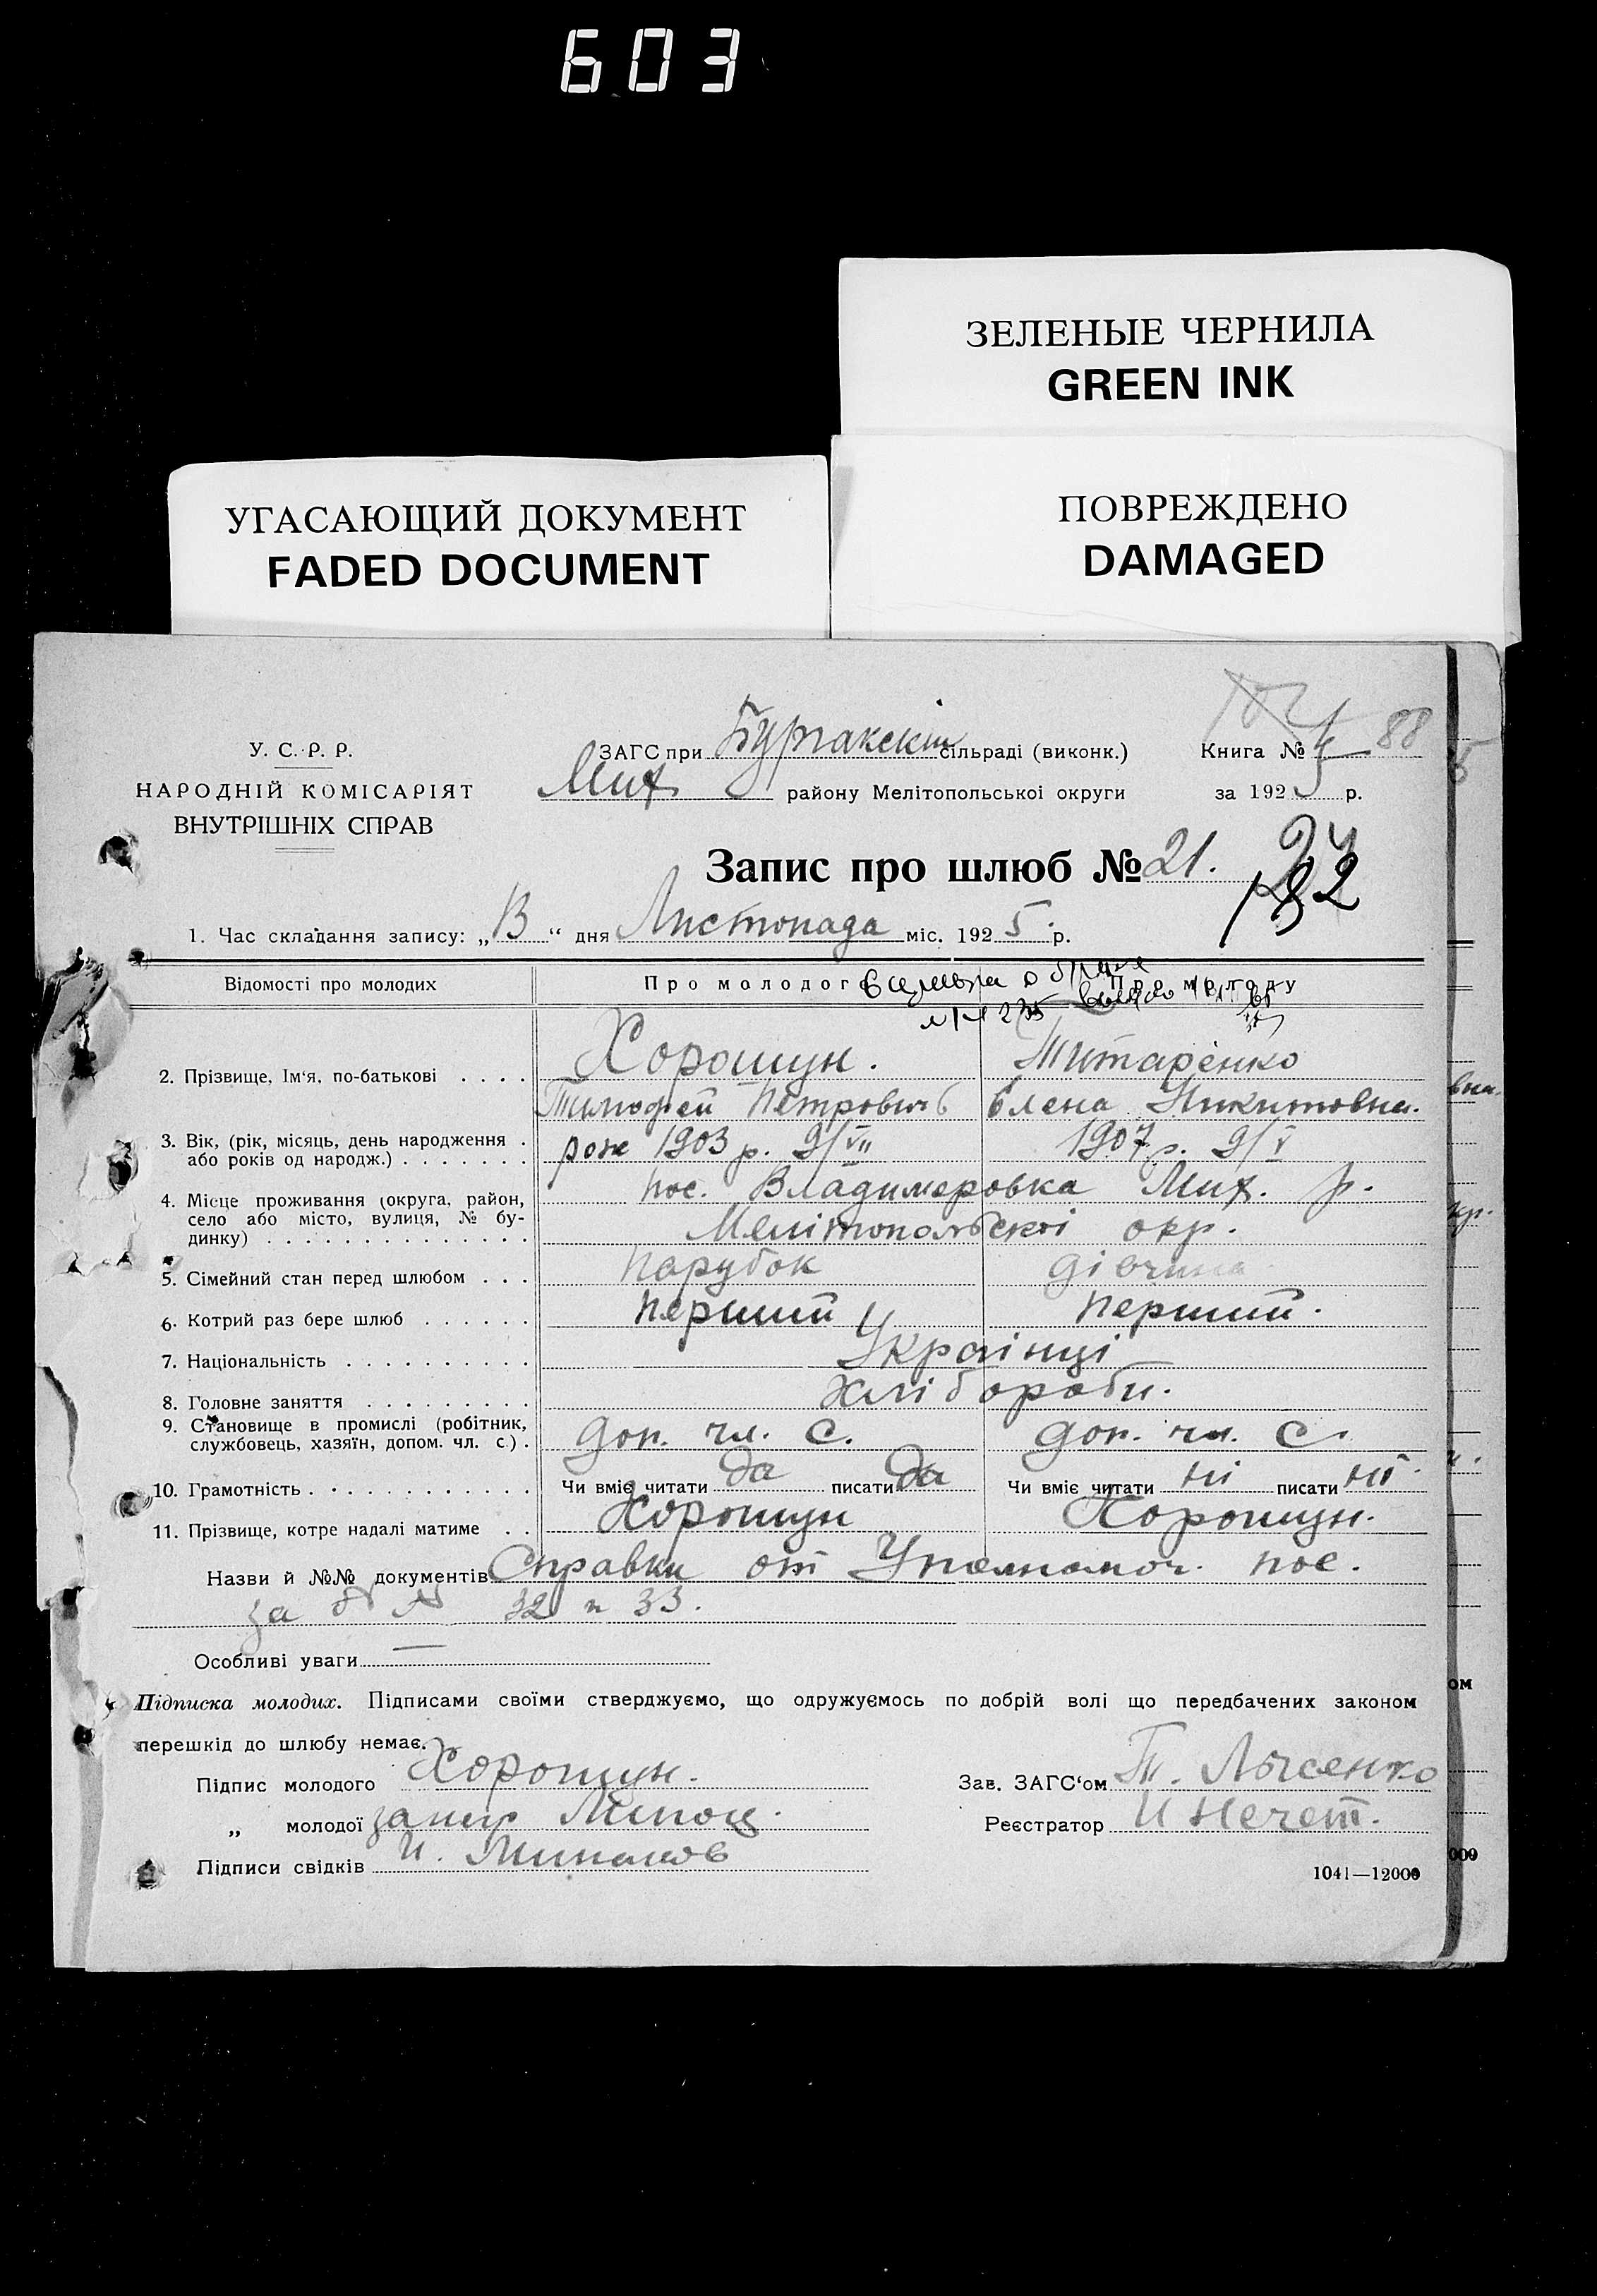 603
ЗЕЛЕНЫЕ ЧЕРНИЛА
GREEN INK
УГАСАЮЩИЙ ДОКУМЕНТ
FADED DOCUMENT
ПОВРЕЖДЕНО
DAMAGED
У. С. Р. Р.
НАРОДНІЙ КОМІСАРІЯТ
ВНУТРІШНІХ СПРАВ
ЗАГС при сільраді (виконк.)
Мих. району Мелітопольської округи
Книга № 88
за 1925 р.
Запис про шлюб № 21.
182
1. Час складання запису: „13“ дня Листопада міс. 1925 р.
Відомості про молодих
Про молодого
Про молоду
2. Прізвище, Ім‘я, по-батькові . . . . Хорошун. Титаренко
Тимофей Петровичъ Елена Никитовна.
3. Вік, (рік, місяць, день народження .
або років од народж.) . . . . . . . рож 1903 р. 9/VII 1907 р. 9/V
4. Місце проживання (округа, район,
село або місто, вулиця, № бу-
динку) . . . . . . . . . . . . . .
пос. Владимеровка Мих. р.
Мелітопольскоі окр.
5. Сімейний стан перед шлюбом . . . Парубок дівчина
6. Котрий раз бере шлюб . . . . . . Перший Перший.
7. Національність . . . . . . . . . . Украінці
8. Головне заняття . . . . . . . . . Хлібороби.
9. Становище в промислі (робітник,
службовець, хазяїн, допом. чл. с.) . доп. чл. С. доп. чл. С.
10. Грамотність . . . . . . . . . . . . Чи вміє читати да писати да Чи вміє читати ні писати ні
11. Прізвище, котре надалі матиме . . Хорошун Хорошун.
Назви й №№ документів Справки от Уполномоч. пос.
за 32 и 33.
Особливі уваги —
Підписка молодих. Підписами своїми стверджуємо, що одружуємось по добрій волі що передбачених законом
перешкід до шлюбу немає.
Підпис молодого Хорошун.
„ молодої
Підписи свідків И.
Зав. ЗАГС‘ом Т. Лысенко
Реєстратор
1041—12000